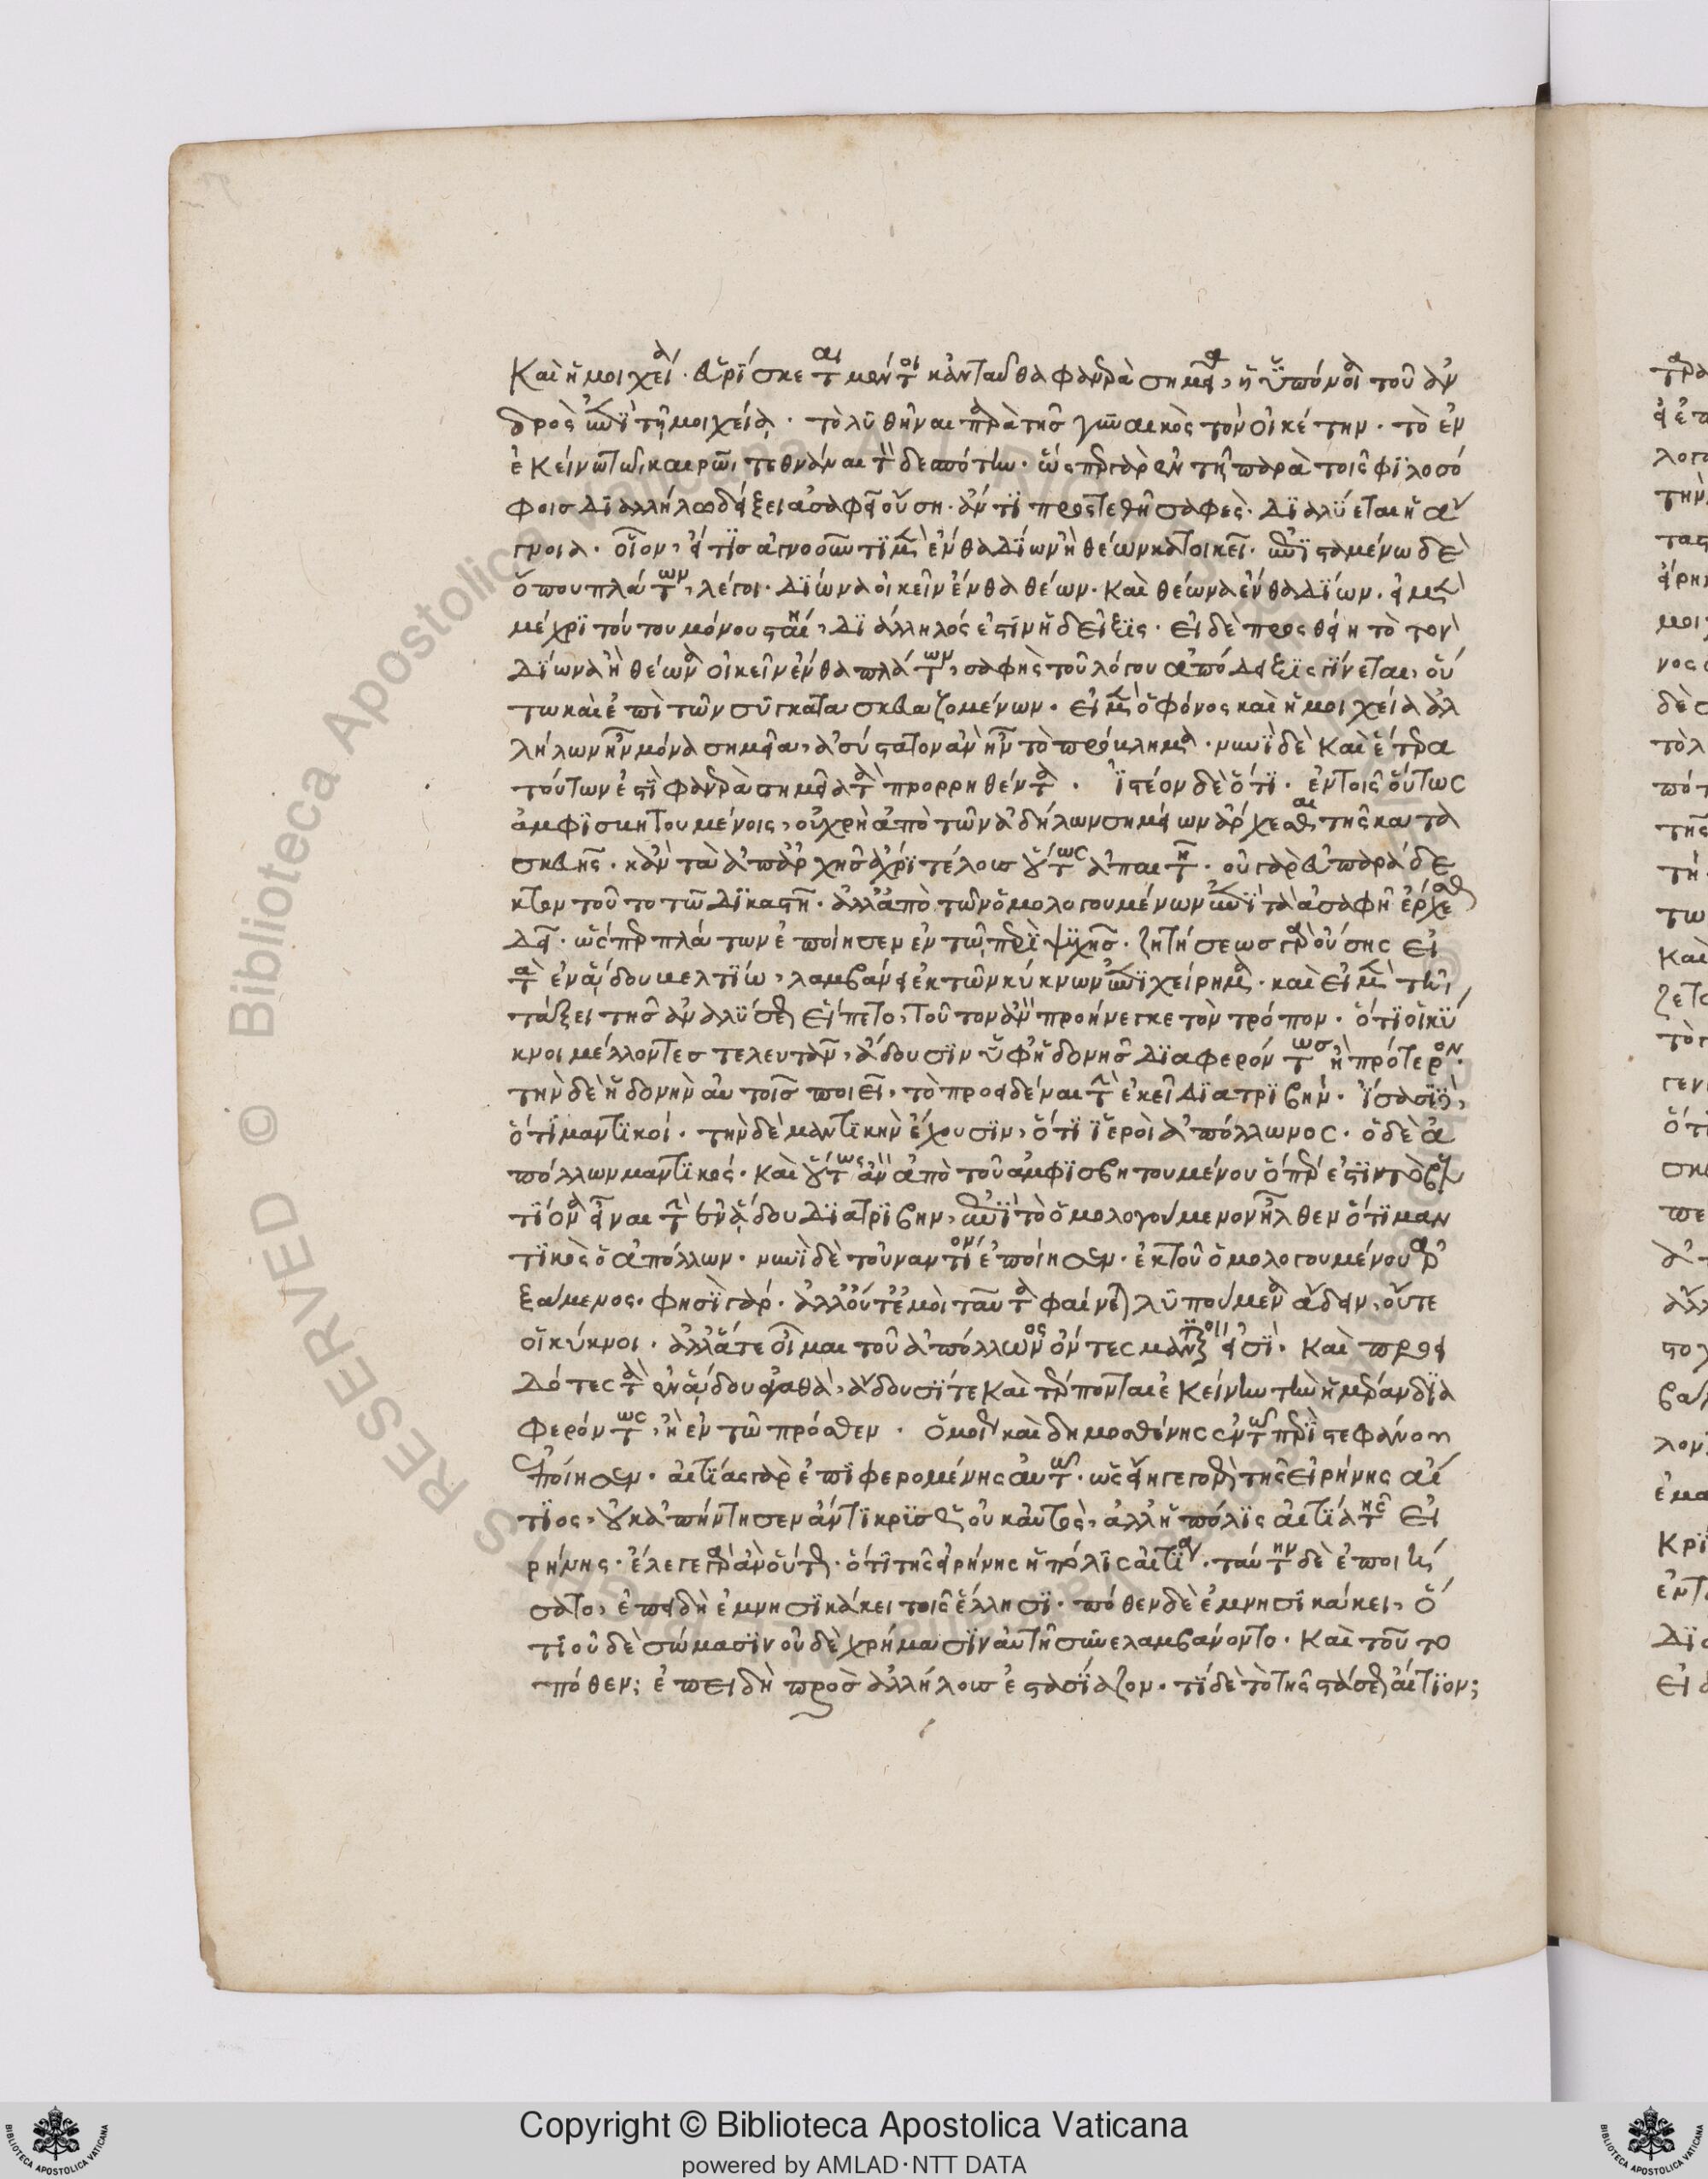 Καὶ ἡ μοιχεία. εὑρίσκεται μέντοι κἀνταῦθα φανερὰ σημεῖα, ἡ ὑπόνοια τοῦ ἀν
δρὸς ἐπὶ τῇ μοιχείᾳ. τὸ λυθῆναι παρὰ τῆς γυναικὸς τὸν οἰκέτην. τὸ ἐν
ἐκείνω τῶ καιρῶ τεθνάναι τὸν δεσπότην. ὥσπερ γὰρ ἐν τῇ παρὰ τοῖς φιλοσό
φοις διαλλήλω δείξει ἀσαφεῖ οὔση. ἄν τι προστεθῆ σαφὲς. διαλύεται ἡ ἄ
γνοια. οἷον, εἴ τις ἀγνοοῦντί μὲν ἔνθα Δίων ἢ Θέων κατοικεῖ. ἐπισταμένω δὲ
ὅπου Πλάτων, λέγοι. Δίωνα οἰκεῖν ἔνθα Θέων. Καὶ Θέωνα ἔνθα Δίων. εἰ μὲν
μέχρι τούτου μόνου σταίη, διάλληλός ἐστιν ἡ δεῖξις. εἰ δὲ προσθείη τὸ τὸν
Δίωνα ἢ Θέωνα οἰκεῖν ἔνθα Πλάτων, σαφὴς τοῦ λόγου ἀπόδειξις γίνεται, οὕ
τω καὶ ἐπὶ τῶν συγκατασκευαζομένων. εἰ μὲν ὁ φόνος καὶ ἡ μοιχεία ἀλ
λήλων ἦν μόνα σημεῖα, ἀσύστατον ἂν ἦν τὸ πρόκλημα. νυνὶ δὲ Καὶ ἕτερα
τούτων ἐστὶ φανερὰ σημεῖα τὰ προρρηθέντα. Ἰστέον δὲ ὅτι. ἐν τοῖς οὕτως
ἀμφισβητουμένοις, οὐ χρὴ ἀπὸ τῶν ἀδήλων σημείων ἄρχεσθαι τῆς κατα
σκευῆς. κἂν τὰ ἀπ' ἀρχῆς ἄχρι τέλους οὕτως ἀπαιτῆ. οὐ γὰρ εὐπαράδε
κτον τοῦτο τῶ δικαστῆ. ἀλλ' ἀπὸ τῶν ὁμολογουμένων ἐπὶ τὰ ἀσαφῆ ἔρχεσθαι
δεῖ. ὥσπερ Πλάτων ἐποίησεν ἐν τῶ περὶ ψυχῆς. ζητήσεως γὰρ οὔσης εἰ
τὰ ἐν ἅδου βελτίω, λαμβάνει ἐκ τῶν κύκνων ἐπιχείρημα. καὶ εἰ μὲν τῇ
τάξει τῆς ἀναλύσεως εἵπετο, τοῦτον ἂν προήνεγκε τὸν τρόπον. ὅτι οἱ κύ
κνοι μέλλοντες τελευτᾶν, ἄδουσιν ὑφ' ἡδονῆς διαφερόντως ἢ πρότερον.
τὴν δὲ ἡδονὴν αὐτοῖς ποιεῖ, τὸ προειδέναι τὴν ἐκεῖ διατριβήν. ἴσασι δὲ,
ὅτι μαντικοί. τὴν δὲ μαντικὴν ἔχουσιν, ὅτι ἱεροὶ Ἀπόλλωνος. ὁ δὲ Ἀ
πόλλων μαντικός. Καὶ οὕτως ἂν ἀπὸ τοῦ ἀμφισβητουμένου ὅπερ ἐστὶν τὸ βελ
τίονα εἶναι τὴν ἐν ἅδου διατριβὴν, ἐπὶ τὸ ὁμολογούμενον ἦλθεν ὅτι μαν
τικὸς ὁ Ἀπόλλων. νυνὶ δὲ τοὐναντίον ἐποίησεν. ἐκ τοῦ ὁμολογουμένου ἀρ
ξάμενος. φησὶ γάρ. ἀλλ' οὔτ' ἐμοὶ ταῦτα φαίνεται λυπούμενα ἄδειν, οὔτε
οἱ κύκνοι. ἀλλ' ἅτε οἶμαι τοῦ Ἀπόλλωνος ὄντες μαντικοί εἰσί. Καὶ προει
δότες τὰ ἐν ἅδου ἀγαθὰ, ἄδουσί τε Καὶ τέρπονται ἐκείνην τὴν ἡμέραν δια
φερόντως, ἢ ἐν τῶ πρόσθεν. ὅμοιον καὶ Δημοσθένης ἐν τῶ περὶ στεφάνου
ἐποίησεν. αἰτίας γὰρ ἐπιφερομένης αὐτῶ. ὡς εἴη γεγονὼς τῆς εἰρήνης αἴ
τιος, οὐκ ἀπήντησεν ἀντικρὺς ὅτι οὐκ αὐτὸς, ἀλλ' ἡ πόλις αἰτία τῆς εἰ
ρήνης. ἔλεγε γὰρ ἂν οὕτως. ὅτι τῆς εἰρήνης ἡ πόλις αἰτία. ταύτην δὲ ἐποιή
σατο, ἐπειδὴ ἐμνησικάκει τοῖς Ἕλλησι. πόθεν δὲ ἐμνησικάκει, ὅ
τι οὐδὲ σώμασιν οὐδὲ χρήμασιν αὐτῆ συνελαμβάνοντο. Καὶ τοῦτο
πόθεν; ἐπειδὴ πρὸς ἀλλήλους ἐστασίαζον. τί δὲ τὸ τῆς στάσεως αἴτιον;
Copyright © Biblioteca Apostolica Vaticana
powered by AMLAD·NTT DATA